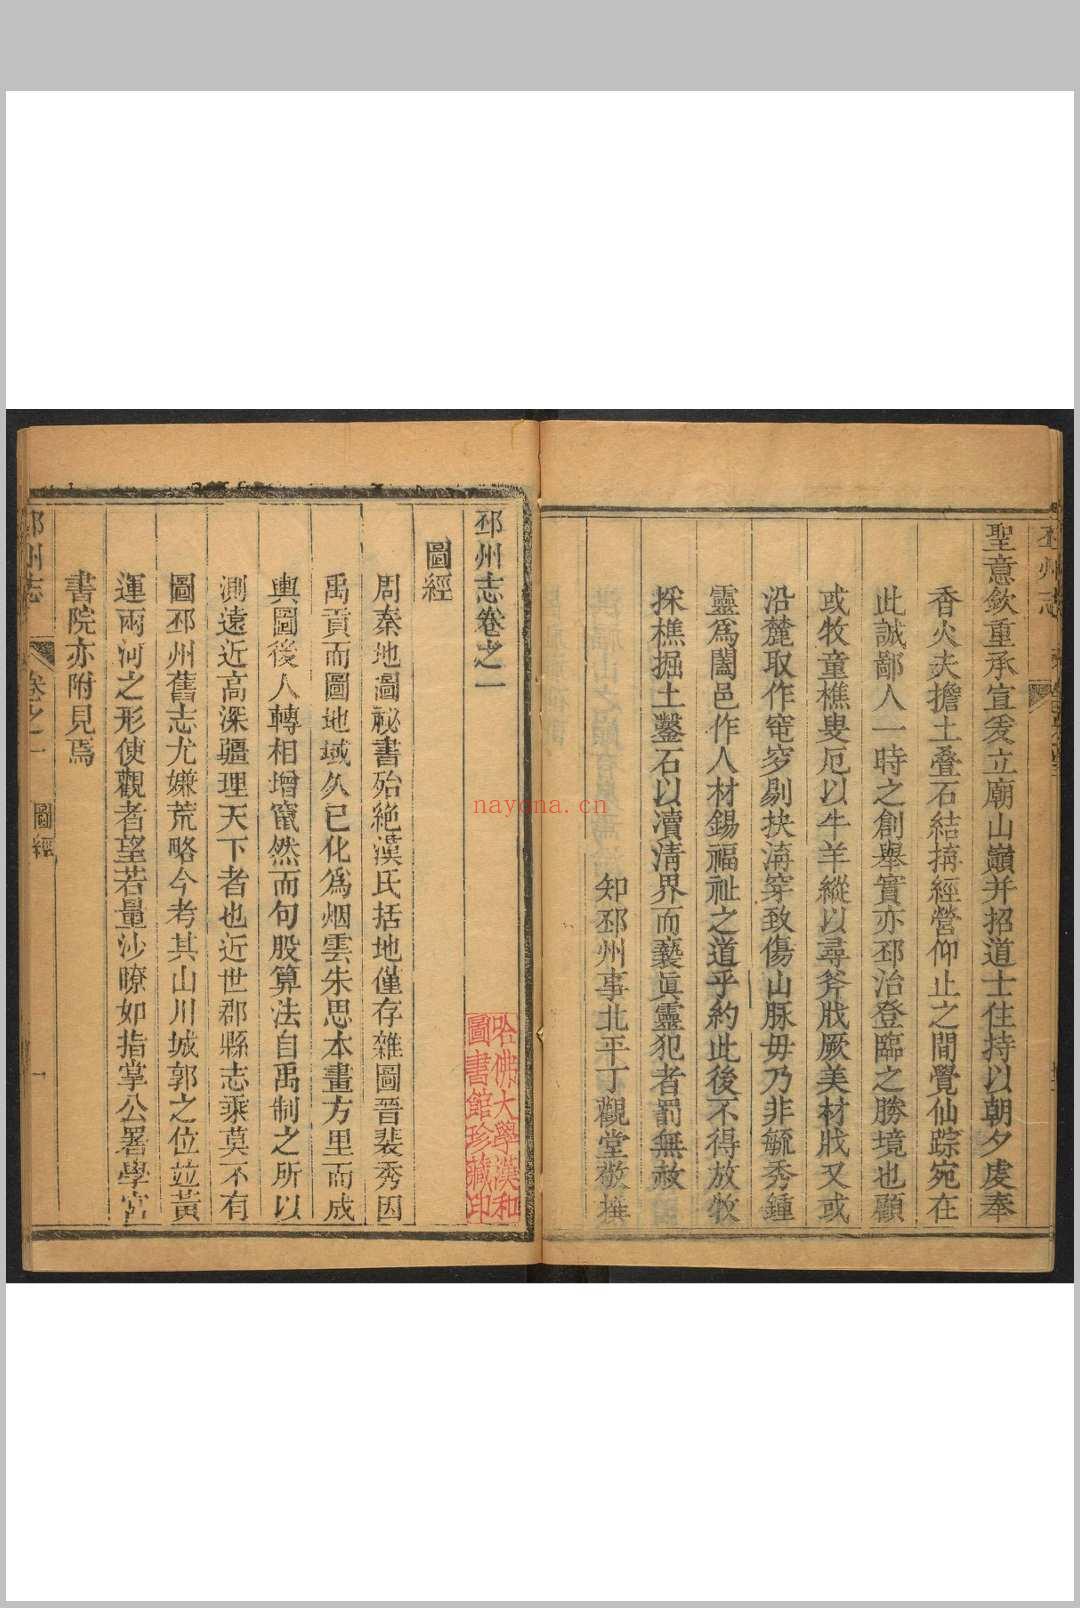 邳州志
聖意欽重承宣爰立廟山巔并招道士住持以朝夕虔奉
香火夫擔土叠石結搆經營仰止之間覺仙踪宛在
此誠鄙人一時之創舉實亦邳治登臨之勝境也顧
或牧童樵叟厄以牛羊縱以尋斧戕厥美材戕又或
沿麓取作窀穸剔抉溝穿致傷山脉毋乃非毓秀鍾
靈爲闔邑作人材錫福祉之道乎約此後不得放牧
採樵掘土鑿石以瀆清界而褻眞靈犯者罰無赦
知邳州事北平丁觀堂敬撰
邳州志卷之一
圖經
周秦地圖祕書殆絶漢氏括地僅存雜圖晉裴秀因
禹貢而圖地域久已化爲烟雲朱思本畫方里而成
輿圖後人轉相增竄然而句股算法自禹制之所以
測遠近高深疆理天下者也近世郡縣志乘莫不有
圖邳州舊志尤嫌荒略今考其山川城郭之位竝黃
運兩河之形使觀者望若量沙瞭如指掌公署學宮
書院亦附見焉
邳州志 卷之一 圖經 一
哈佛大學漢和
圖書館珍藏印
nayona.cn